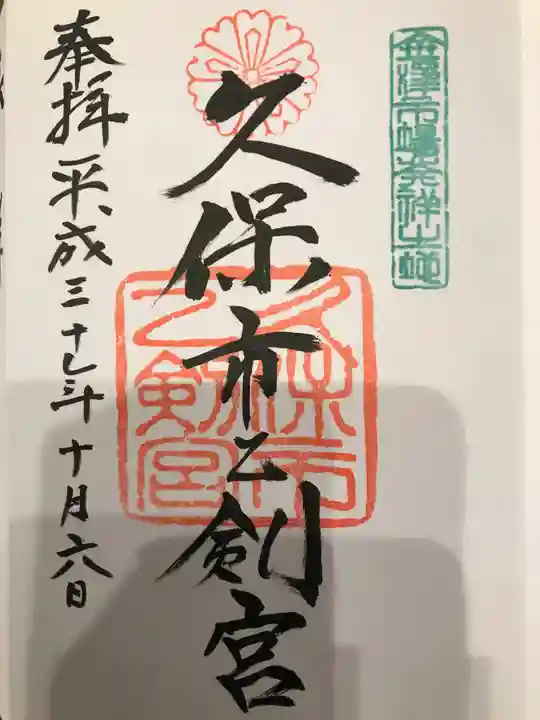 金澤市場発祥之地
久保市乙剣宮
久保市乙剣宮
奉拝 平成三十年十月六日